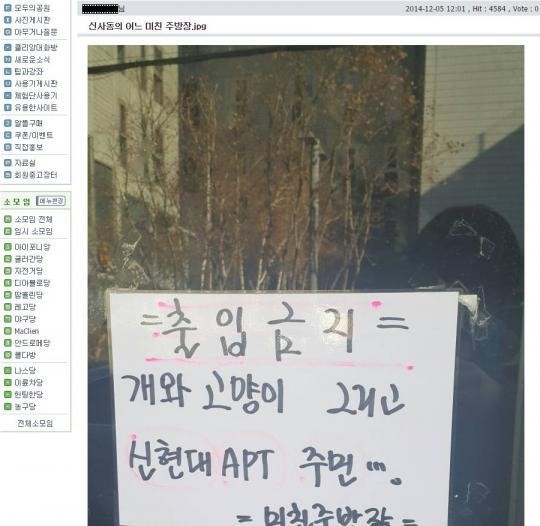 모두의공원
사진게시판
아무거나질문
클리앙대화방
새로운소식
팁과강좌
사용기게시판
체험단사용기
유용한사이트
알뜰구매
쿠폰/이벤트
직접홍보
자료실
회원중고장터
소모임 메뉴편집
소모임 전체
임시 소모임
아이포니앙
굴러간당
자전거당
디아블로당
땀흘린당
레고당
야구당
MaClien
안드로메당
클다방
나스당
이륜차당
헌팅한당
농구당
전체소모임
님
2014-12-05 12:01 , Hit : 4584 , Vote : 0
신사동의 어느 미친 주방장.jpg
=출입금지=
개와 고양이 그리고
신현대 APT 주민 ...
=미친주방장=